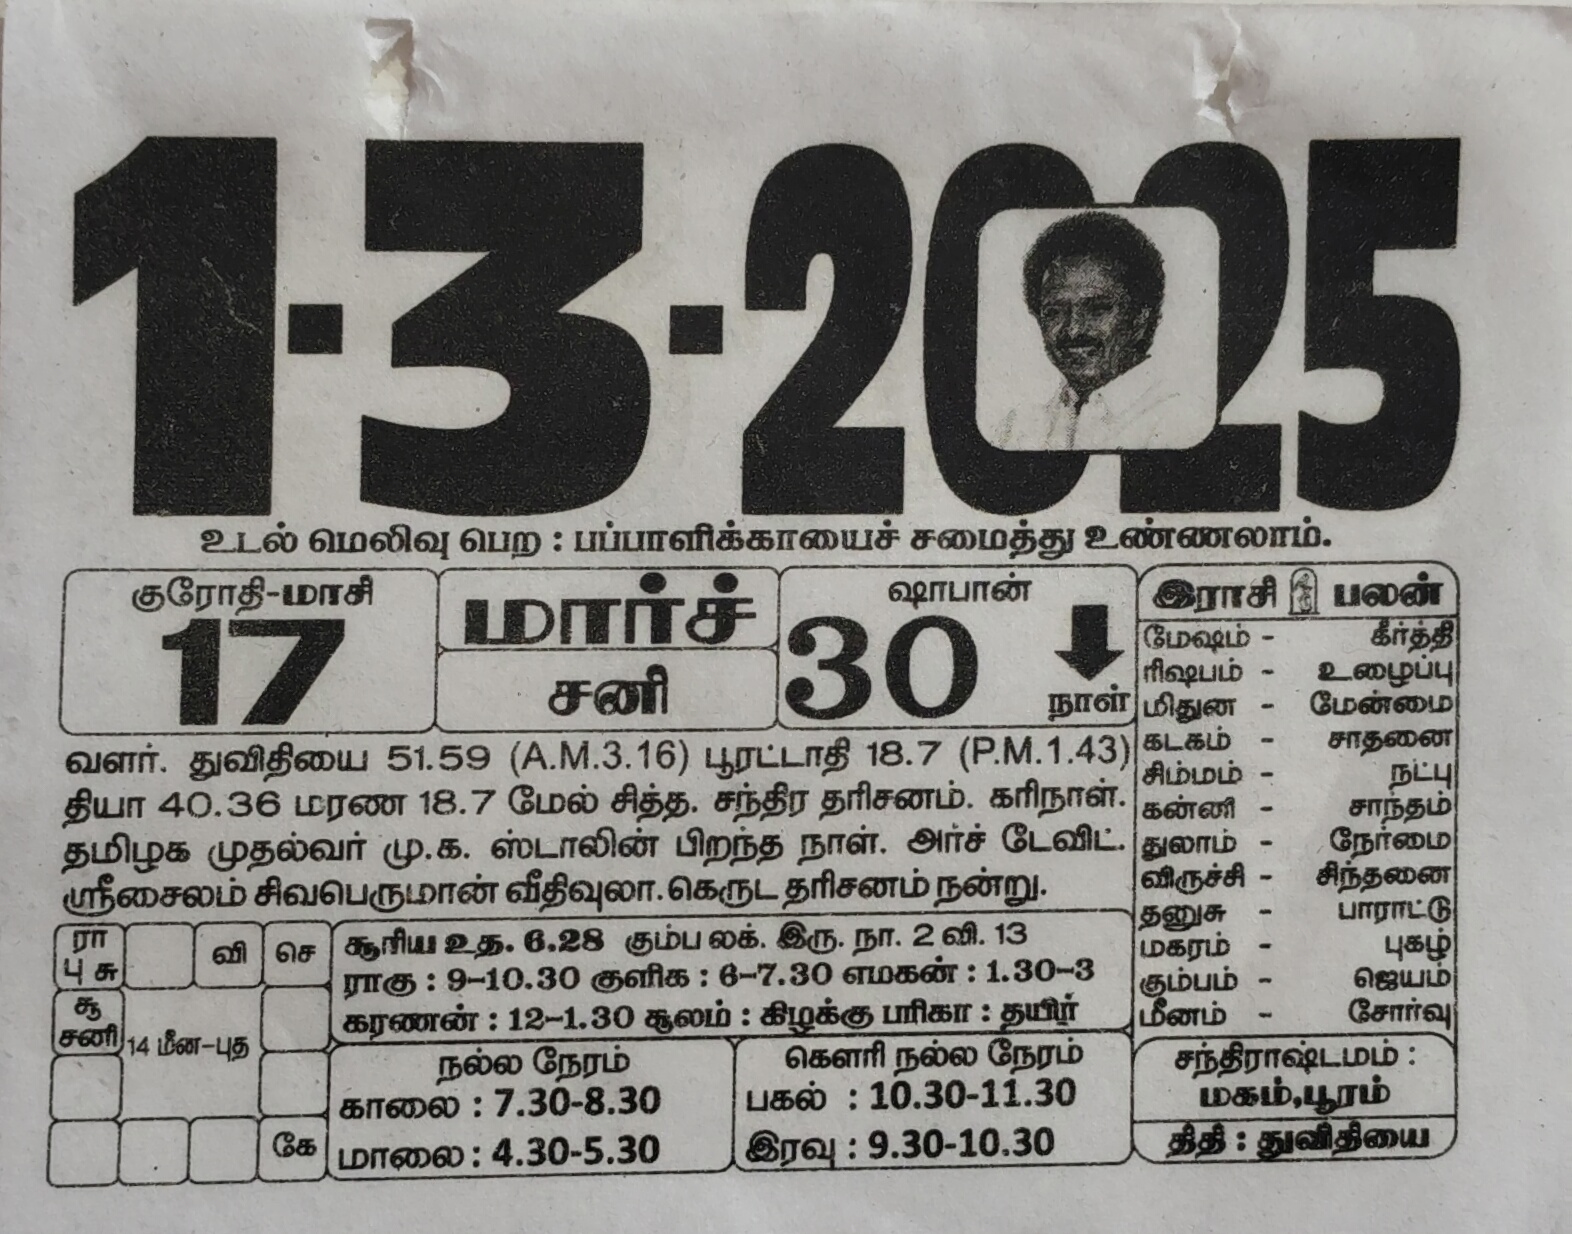 1-3-2025
உடல் மெலிவு பெற : பப்பாளிக்காயைச் சமைத்து உண்ணலாம்.
குரோதி-மாசி
17
மார்ச்
சனி
ஷாபான்
30
நாள்
வளர். துவிதியை 51.59 (A.M.3.16) பூரட்டாதி 18.7 (P.M.1.43)
தியா 40.36 மரண 18.7 மேல் சித்த. சந்திர தரிசனம். கரிநாள்.
தமிழக முதல்வர் மு.க. ஸ்டாலின் பிறந்த நாள். அர்ச் டேவிட்.
ஸ்ரீசைலம் சிவபெருமான் வீதிவுலா. கெருட தரிசனம் நன்று.
இராசி பலன்
மேஷம் - கீர்த்தி
ரிஷபம் - உழைப்பு
மிதுன - மேன்மை
கடகம் - சாதனை
சிம்மம் - நட்பு
கன்னி - சாந்தம்
துலாம் - நேர்மை
விருச்சி - சிந்தனை
தனுசு - பாராட்டு
மகரம் - புகழ்
கும்பம் - ஜெயம்
மீனம் - சோர்வு
ரா
பு சு
வி
செ
சூ
சனி
14 மீன-புத
கே
சூரிய உத. 6.28 கும்ப லக். இரு. நா. 2 வி. 13
ராகு : 9-10.30 குளிக : 6-7.30 எமகன் : 1.30-3
கரணன் : 12-1.30 சூலம் : கிழக்கு பரிகா : தயிர்
நல்ல நேரம்
காலை : 7.30-8.30
மாலை : 4.30-5.30
கௌரி நல்ல நேரம்
பகல் : 10.30-11.30
இரவு : 9.30-10.30
சந்திராஷ்டமம் :
மகம்,பூரம்
திதி : துவிதியை